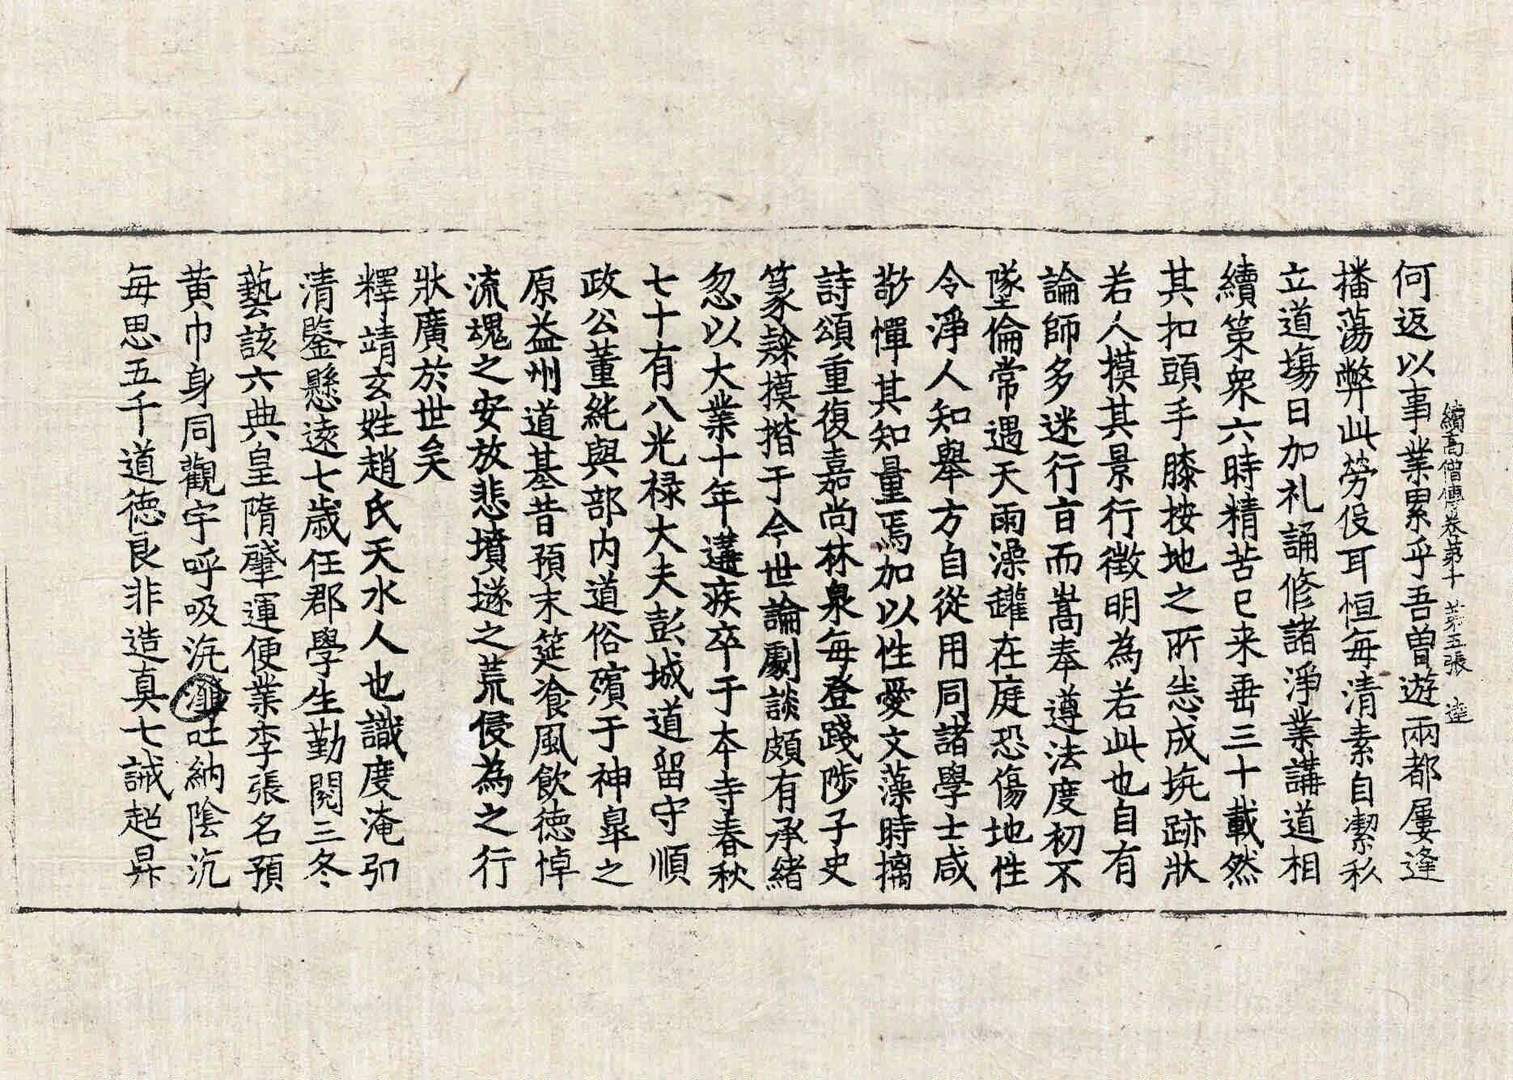 續高僧傳卷苐十 苐五張 逵
何返以事業累乎吾曽遊兩都屢逢
播蕩弊此勞伇耳恒每清素自潔私
立道塲日加礼誦修諸淨業講道相
續策衆六時精苦已来垂三十載然
其扣頭手膝按地之所恙成坑跡狀
若人摸其景行徵明為若此也自有
論師多迷行旨而嵩奉遵法度初不
墜倫常遇天雨澡鑵在庭恐傷地性
令淨人知舉方自從用同諸學士咸
敬憚其知量焉加以性愛文藻時摛
詩頌重復嘉尚林泉每登踐陟子史
篆隸摸揩于今世論劇談頗有承緒
忽以大業十年遘疾卒于夲寺春秋
七十有八光禄大夫彭城道留守順
政公董純與部内道俗殯于神睾之
原益州道基昔預末筵飡風飲徳悼
流魂之安放悲墳墱之荒侵為之行
狀廣於世矣
釋靖玄姓趙氏天水人也識度淹弘
清鑒懸遠七歳任郡學生勤閱三冬
藝該六典皇隋肇運便業李張名預
黄巾身同觀宇呼吸沆瀣吐納陰沉
每思五千道徳良非造真七誡超昇